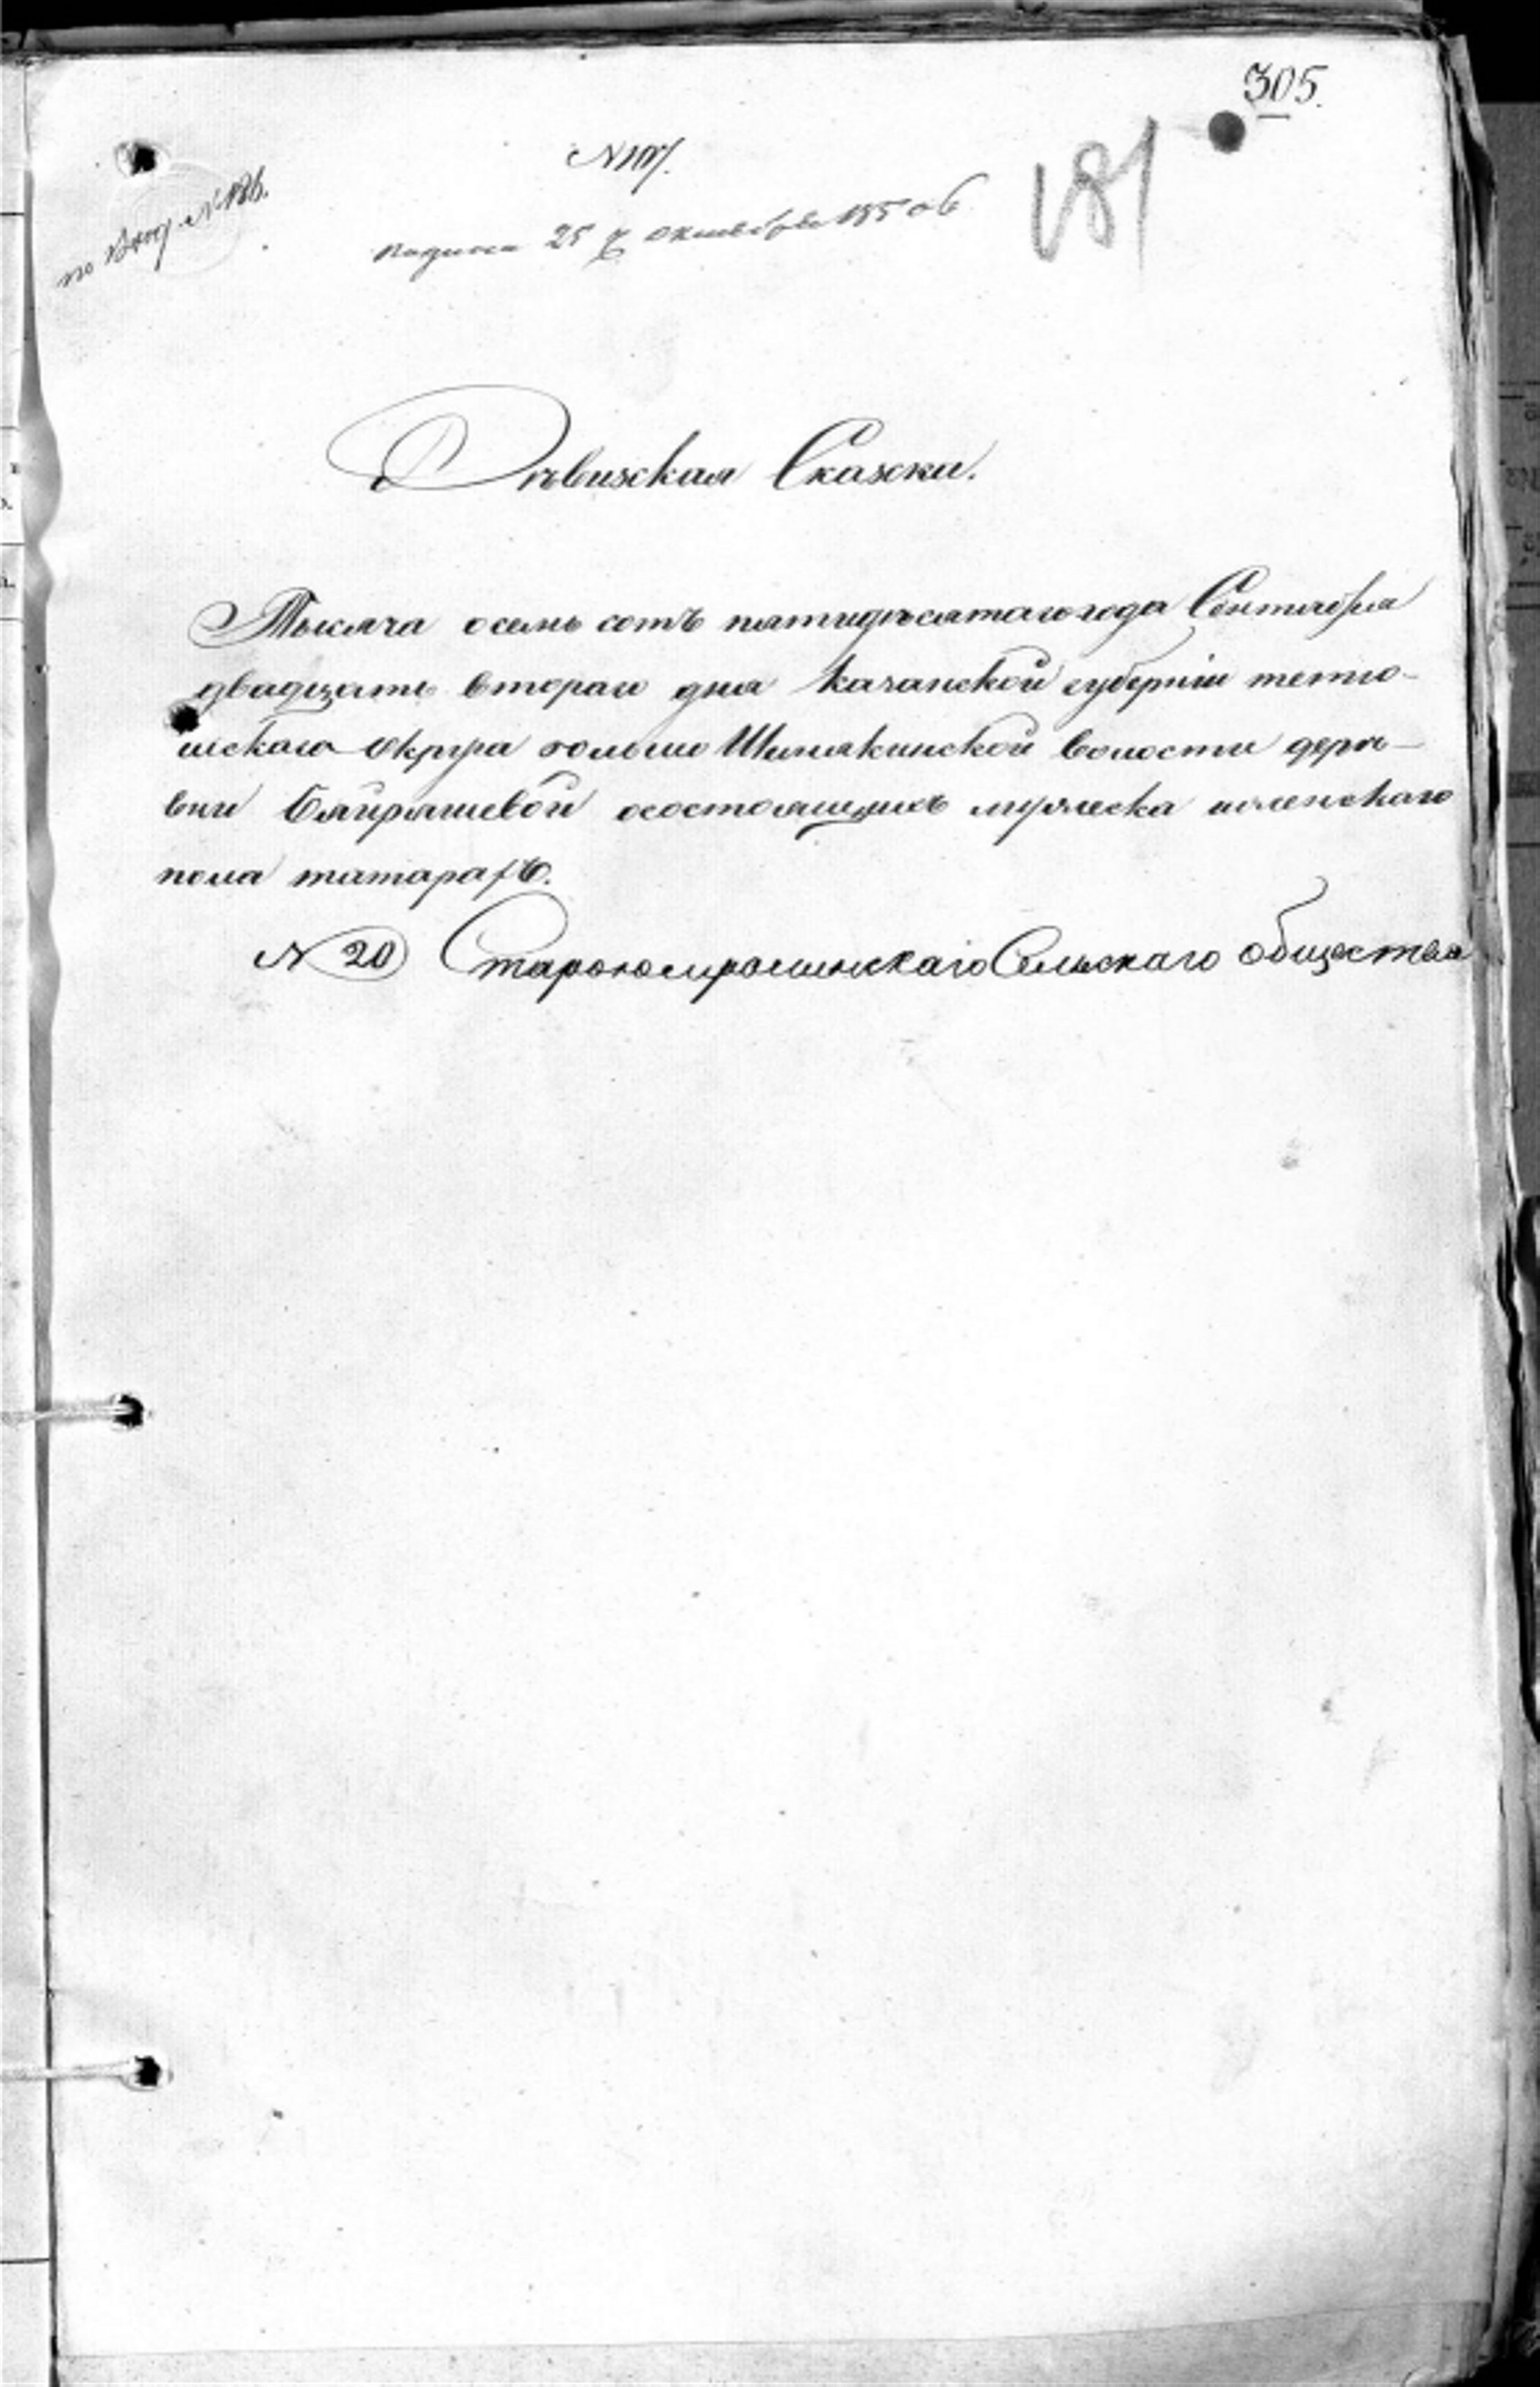 305.
N 107.
181
по Вход. N 186.
подана 25 октября 1850 г.
Ревизская Сказка.
Тысяча осемь сотъ пятидесятаго года Сентября
двадцать втораго дня Казанской губерніи тетю-
шскаго Округа больше Шемякинской волости дере-
вни Байряшевой осостоящихъ мужеска иженскаго
пола татарахъ.
N 20 Сельскаго общества